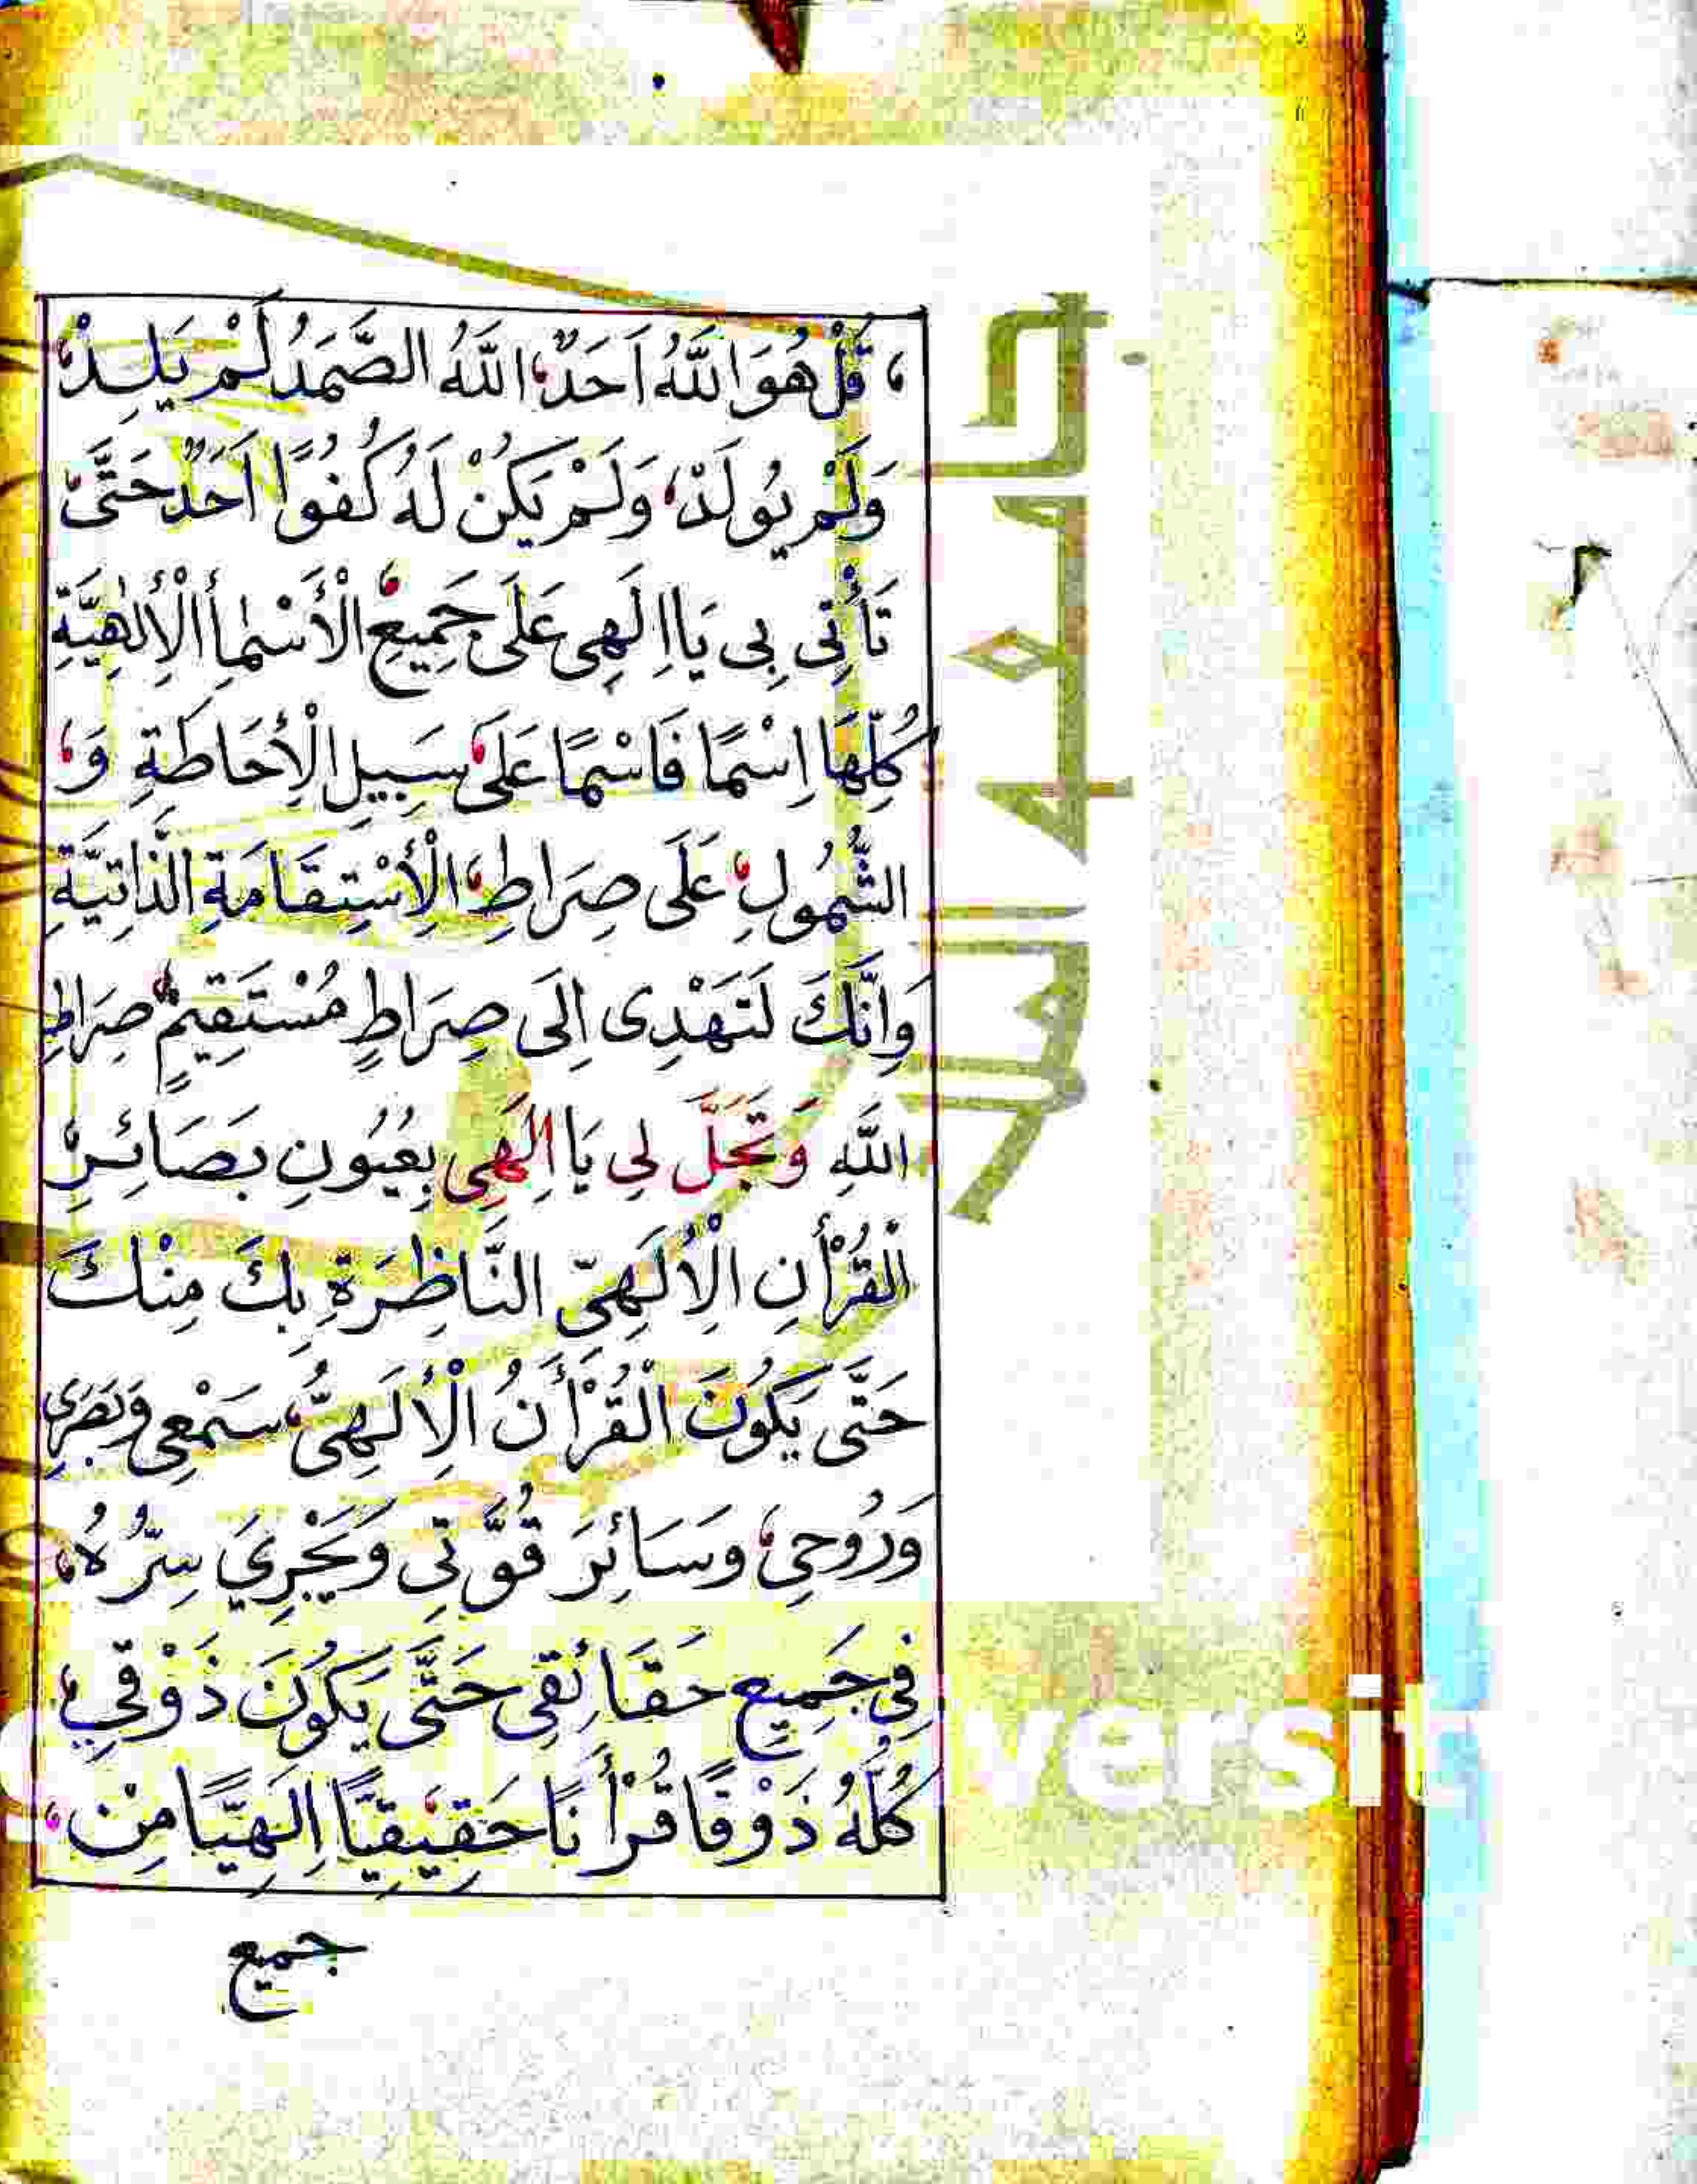 ، قُلْ هُوَ اللَّهُ اَحَدٌ، اللَّهُ الصَّمَدُ لَمْ يَلِدْ،
وَلَمْ يُولَدْ، وَلَمْ يَكُنْ لَهُ كُفُوًا اَحَدٌ حَتَّى
تَأْتِى بِى يَا اِلَهِى عَلَى جَمِيعِ الْأَسْمَاأِ الْأِلٰهِيَّةِ
كُلِّهَا اِسْمًا فَاسْمًا عَلَى سَبِيلِ الْأِحَاطَةِ وَ،
الشُّمُولِ، عَلَى صِرَاطِ، الْأِسْتِقَامَةِ الذَّاتِيَّةِ
وَاِنَّكَ لَتَهْدِى اِلَى صِرَاطٍ مُسْتَقِيمٍ صِرَاطِ
اللَّهِ وَتَجَلَّ لِي يَا اِلَهِى بِعُيُونِ بَصَائِرِ،
الْقُرْأَنِ الْأِلَهِىِّ النَّاظِرَةِ بِكَ مِنْكَ
حَتَّى يَكُونَ الْقُرْأَنُ الْأِلَهِىُّ، سَمْعِى وَبَصَرِى
وَرُوحِى، وَسَائِرَ قُوَّتِى وَيَجْرِيَ سِرُّهُ،
فِى جَمِيعِ حَقَائِقِى حَتَّى يَكُونَ ذَوْقِي،
كُلُّهُ ذَوْقًا قُرْأَنًا حَقِيقِيًّا اِلَهِيًّا مِنْ،
جميع
جامعة الملك
versit